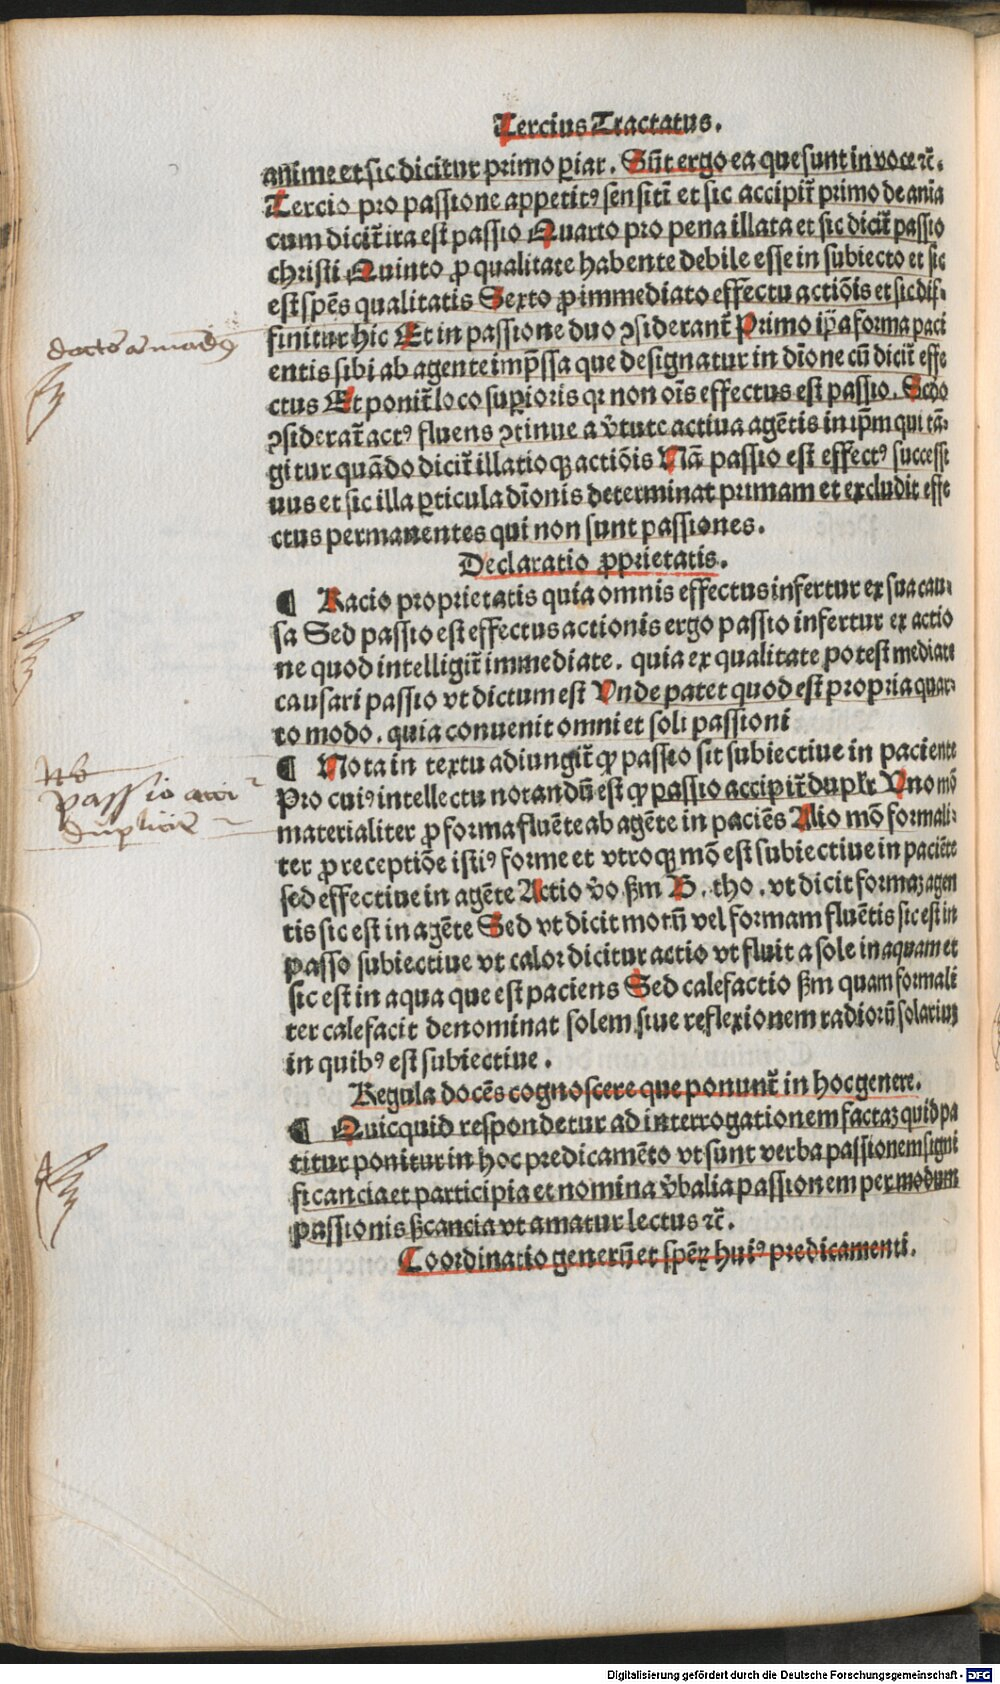 Tercius Tractatus.
anime et sic dicitur primo ꝑiar. Sūt ergo ea que sunt in voce ⁊c̄.
Tercio pro passione appetitꝰ sensiti ̄ et sic accipit̄ primo de aīa
cum dicit̄ ira est passio Quarto pro pena illata et sic dicit̄ passio
christi Quinto ꝓ qualitate habente debile esse in subiecto et sic
est spēs qualitatis Sexto ꝓ immediato effectu actiōis et sic dif⸗
finitur hic Et in passione duo ꝯsiderant̄ Primo ip̄a forma paci
entis sibi ab agente imp̄ssa que designatur in dīone cū dicit̄ effe
ctus Et ponit̄ loco suꝑioris qꝛ non oīs effectus est passio. Scd̄o
ꝯsiderat̄ actꝰ fluens ꝯtinue a v̄tute actiua agētis in ip̄m qui tā⸗
gitur quādo dicit̄ illatioꝙ actiōis Nā passio est effectꝰ successi
uus et sic illa ꝑticula dīonis determinat primam et excludit effe
ctus permanentes qui non sunt passiones.
Declaratio ꝓprietatis.
¶ Racio proprietatis quia omnis effectus infertur ex sua cau⸗
sa Sed passio est effectus actionis ergo passio infertur ex actio
ne quod intelligit̄ immediate. quia ex qualitate potest mediate
causari passio vt dictum est Vnde patet quod est propria quar⸗
to modo. quia conuenit omni et soli passioni
¶ Nota in textu adiungit̄ ꝙ passio sit subiectiue in paciente
Pro cuiꝰ intellectu notandū est ꝙ passio accipit̄ duplr̄ Vno mō
materialiter ꝓ forma fluēte ab agēte in paciēs Alio mō formali⸗
ter ꝓ receptiōe istiꝰ forme et vtroqꝫ mō est subiectiue in paciēte
sed effectiue in agēte Actio v̄o ẜm B. tho. vt dicit formaꝫ agen
tis sic est in agēte Sed vt dicit motū vel formam fluētis sic est in
passo subiectiue vt calor dicitur actio vt fluit a sole in aquam et
sic est in aqua que est paciens Sed calefactio ẜm quam formali
ter calefacit denominat solem siue reflexionem radiorū solarium
in quibꝰ est subiectiue.
Regula docēs cognoscere que ponunt̄ in hoc genere.
¶ Quicquid respondetur ad interrogationem factaꝫ quid pa
titur ponitur in hoc predicamēto vt sunt verba passionem signi
ficancia et participia et nomina v̄balia passionem per modum
passionis ẜcancia vt amatur lectus ⁊c̄.
Coordinatio generū et spēꝝ huiꝰ predicamenti.
Nō
passio acci
duplicit̄
Digitalisierung gefördert durch die Deutsche Forschungsgemeinschaft - DFG